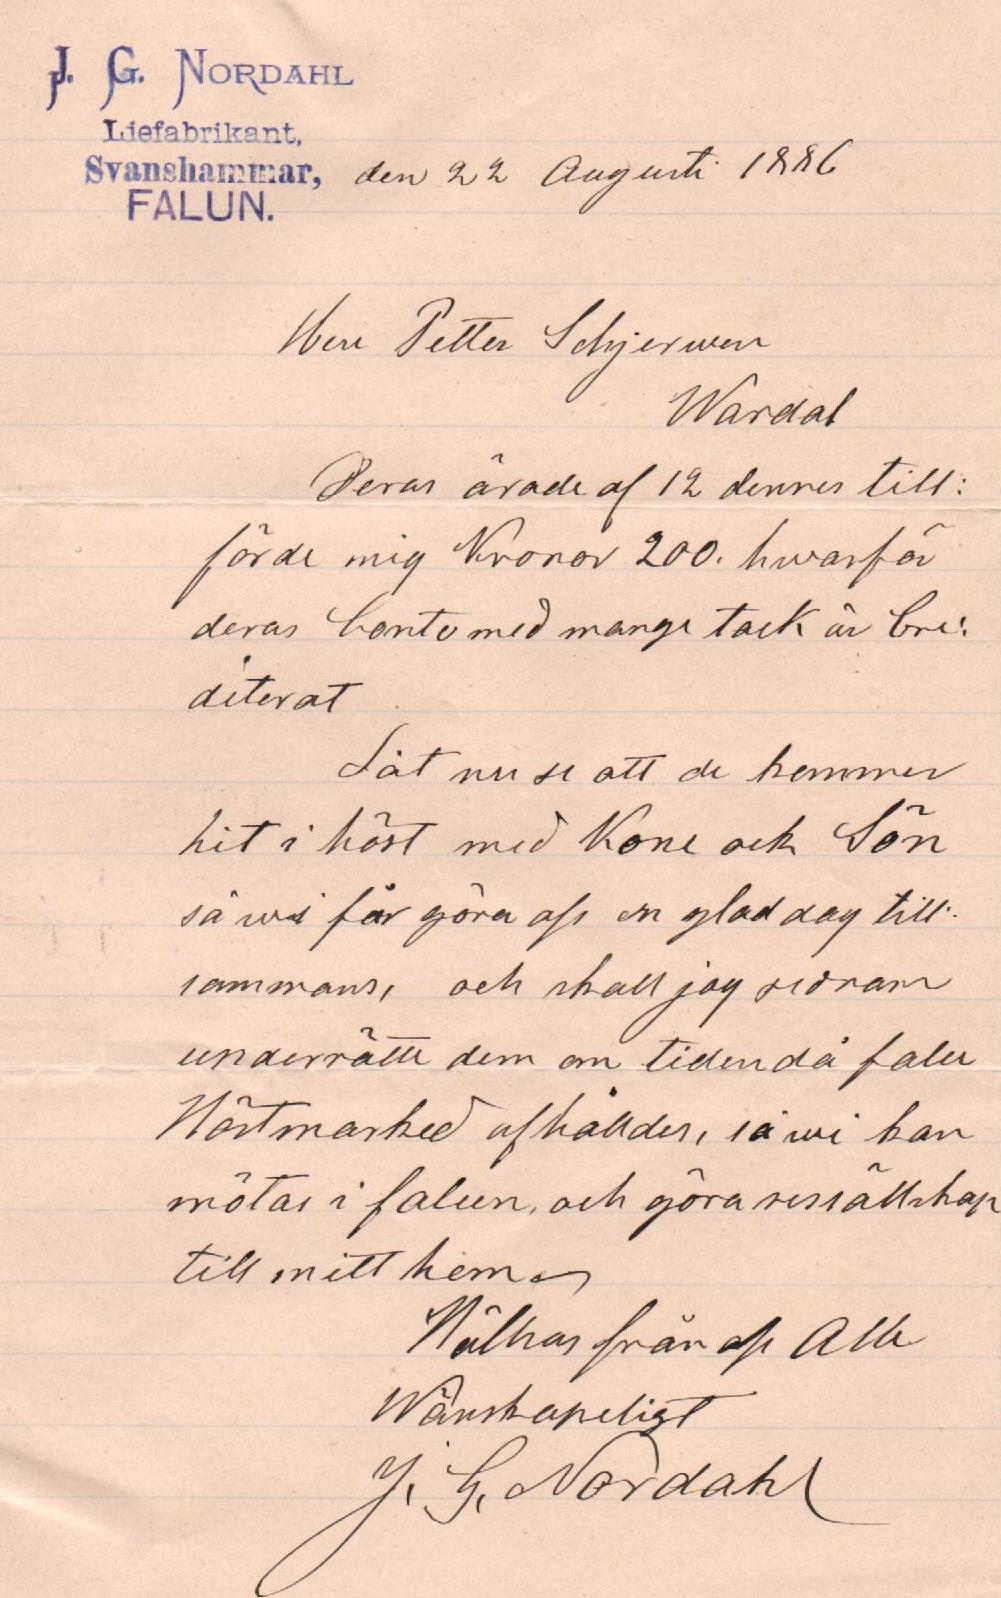 J. G. NORDAHL
Liefabrikant,
Svanshammar,
FALUN.
den 22 Augusti 1886
Herr Petter Schjerwen
Wardal
Deras ärade af 12 dennes till:
förde mig Kronor 200. hwarför
deras Conto med mange tack är Cre:
diterat
Låt nu se att de kommer
hit i höst med Kone och Sön
så wi får göra oss en glad dag till:
sammans, och skall jag sednare
underrätte dem om tiden då falu
Höstmarked afhålldes, så wi kan
mötas i falun, och göra ressällskap
till mitt hem
Hälsas från oss Alle
Wänskapeligt
J. G. Nordahl